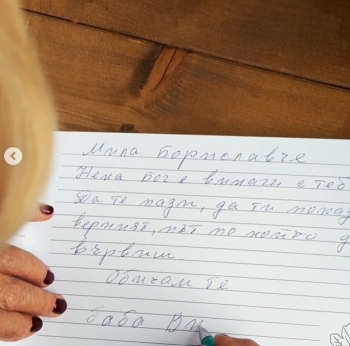 Мила Бориславче
Нека Бог е винаги с теб
Да те пази, да ти показ
верният път по който д
вървиш.
Обичам те
баба Ви